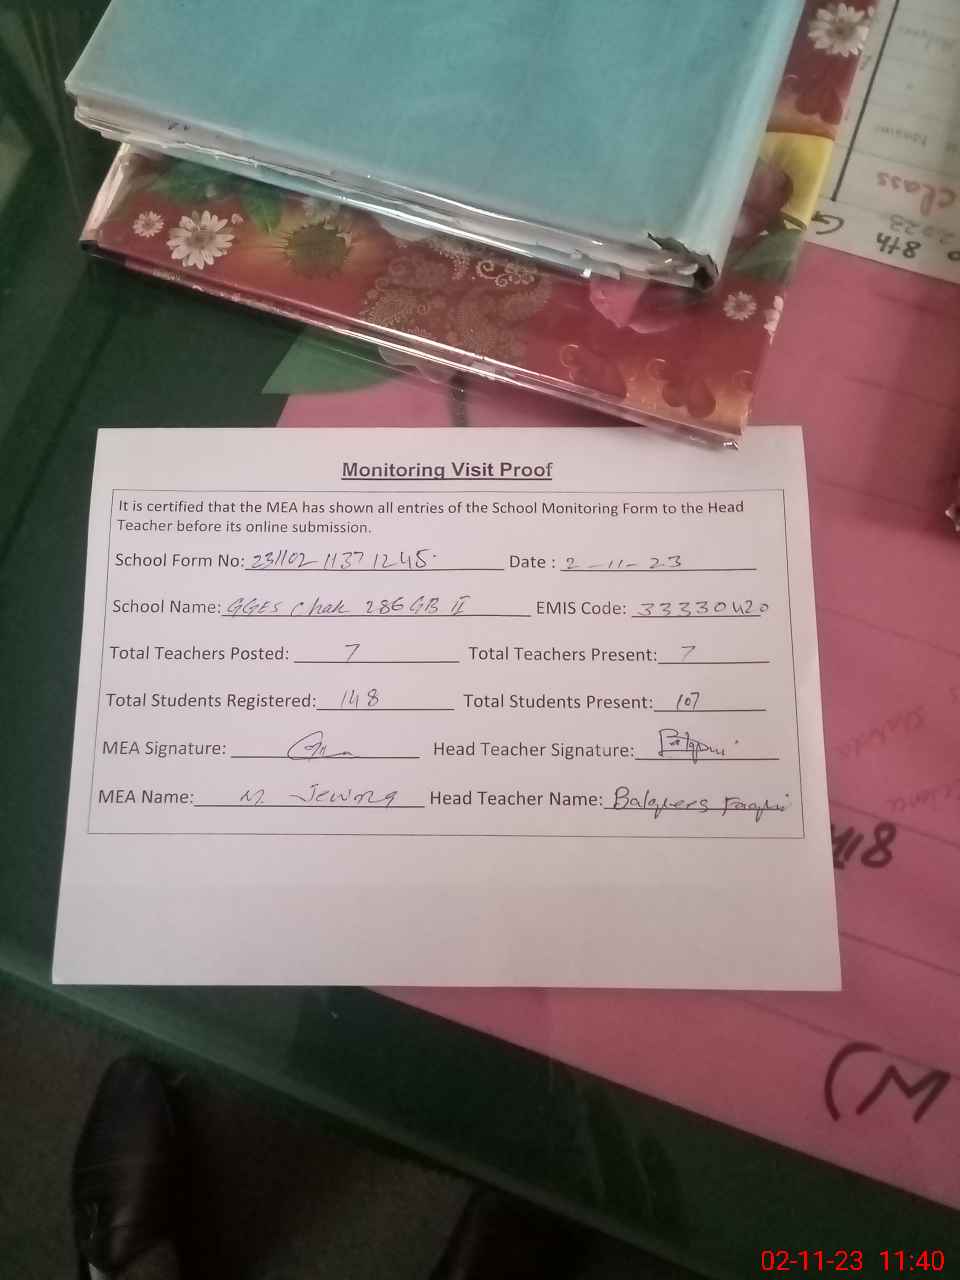 Monitoring Visit Proof
It is certified that the MEA has shown all entries of the School Monitoring Form to the Head
Teacher before its online submission.
School Form No: 231102-1137 1245 Date : 2-11-23
School Name: GGES Chak 286 GB II EMIS Code: 33330420
Total Teachers Posted: 7 Total Teachers Present: 7
Total Students Registered: 148 Total Students Present: 107
MEA Signature: Head Teacher Signature:
MEA Name: M Head Teacher Name:
class
2023
8th
(M
02-11-23 11:40